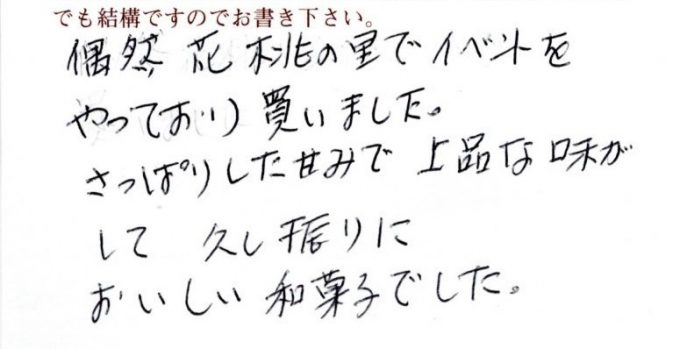 でも結構ですのでお書き下さい。
偶然 花桃の里でイベントを
やっており 買いました。
さっぱりした甘みで 上品な味が
して 久し振りに
おいしい 和菓子でした。